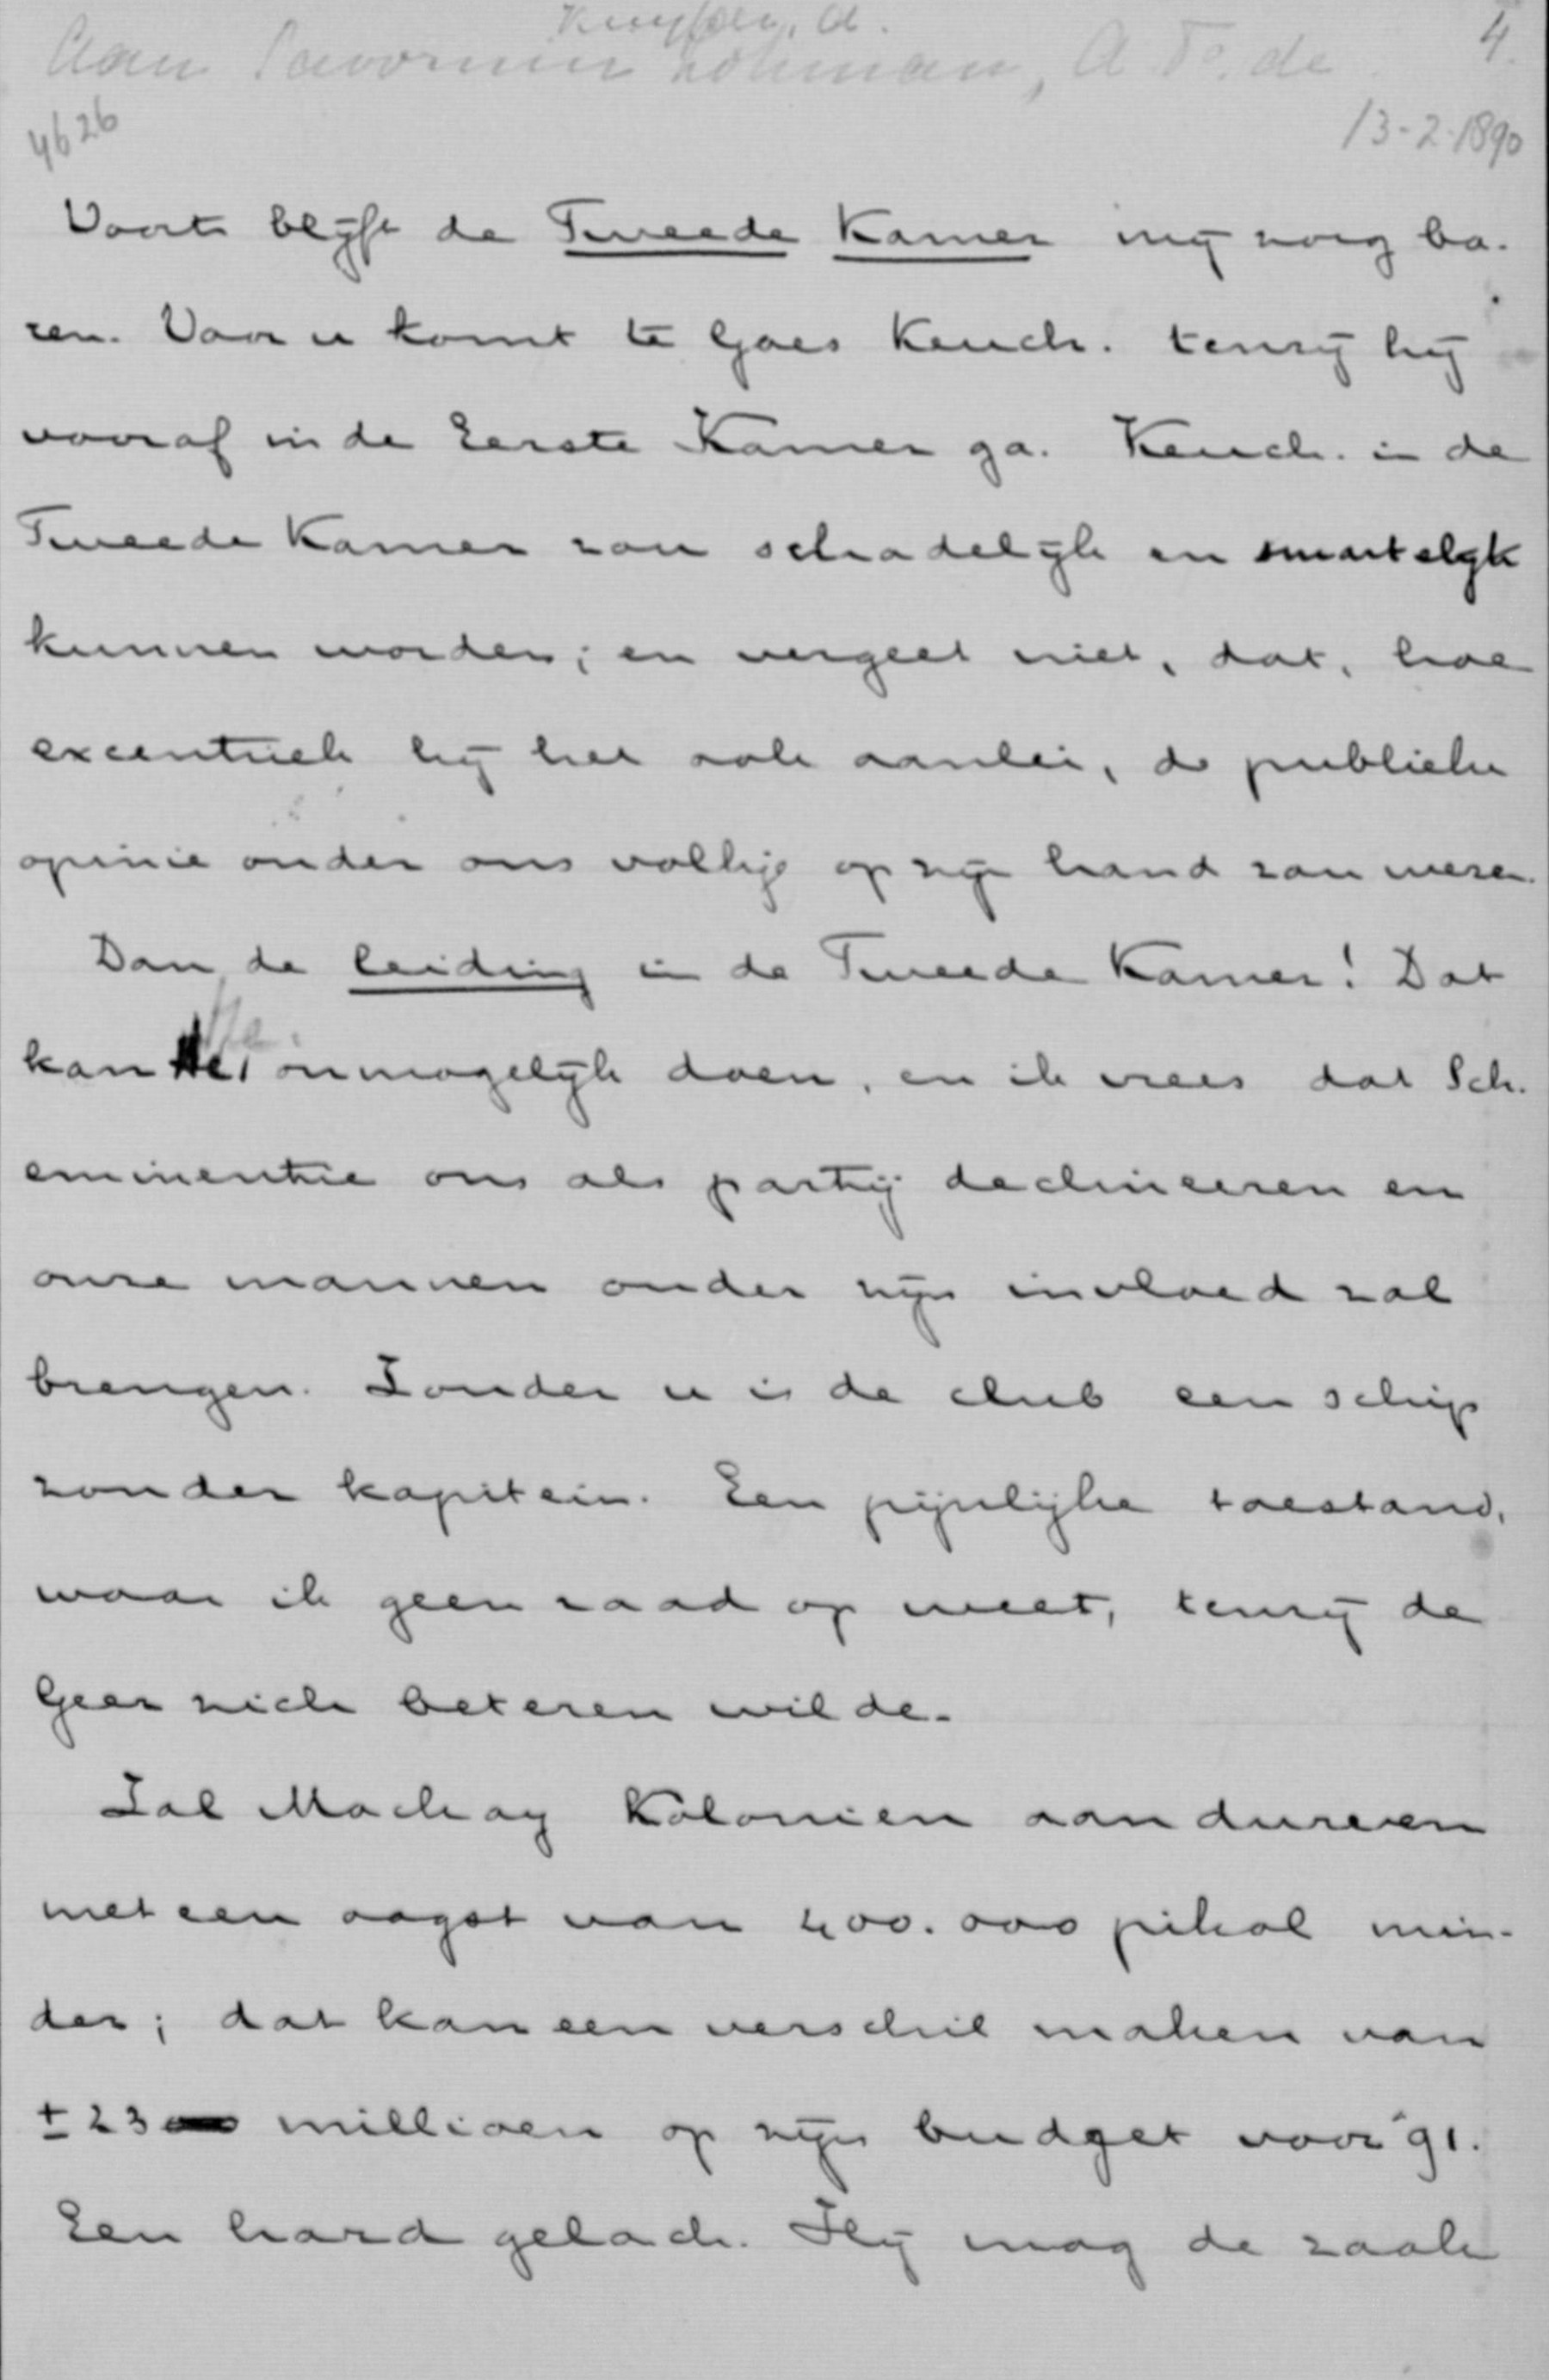 Kuyper, A.
4.
Aan Savornin Lohman, A. F. de
4626
13-2-1890
Voorts blijft de Tweede Kamer mij zorg ba-
ren. Voor u komt te Goes Keuch. tenzij hij
vooraf in de Eerste Kamer ga. Keuch. in de
Tweede Kamer zou schadelijk en smartelijk
kunnen worden; en vergeet niet, dat, hoe
excentriek hij het ook aanlei, de publieke
opinie onder ons volkje op zijn hand zou wezen.
Dan de leiding in de Tweede Kamer! Dat
kan He. onmogelijk doen, en ik vrees dat Sch.
eminentie ons als partij declineeren en
onze mannen onder zijn invloed zal
brengen. Zonder u is de club een schip
zonder kapitein. Een pijnlijke toestand,
waar ik geen raad op weet, tenzij de
Geer zich beteren wilde.
Zal Mackay Kolonien aandurven
met een oogst van 400.000 pikol min-
der; dat kan een verschil maken van
± 23 millioen op zijn budget voor '91.
Een hard gelach. Hij mag de zaak